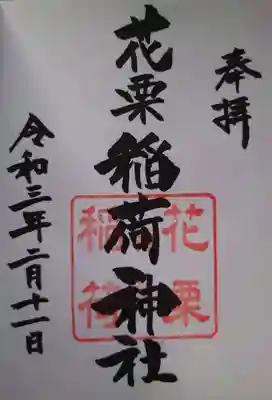 奉拝
花栗稲荷神社
花栗
稲荷
令和三年二月十一日